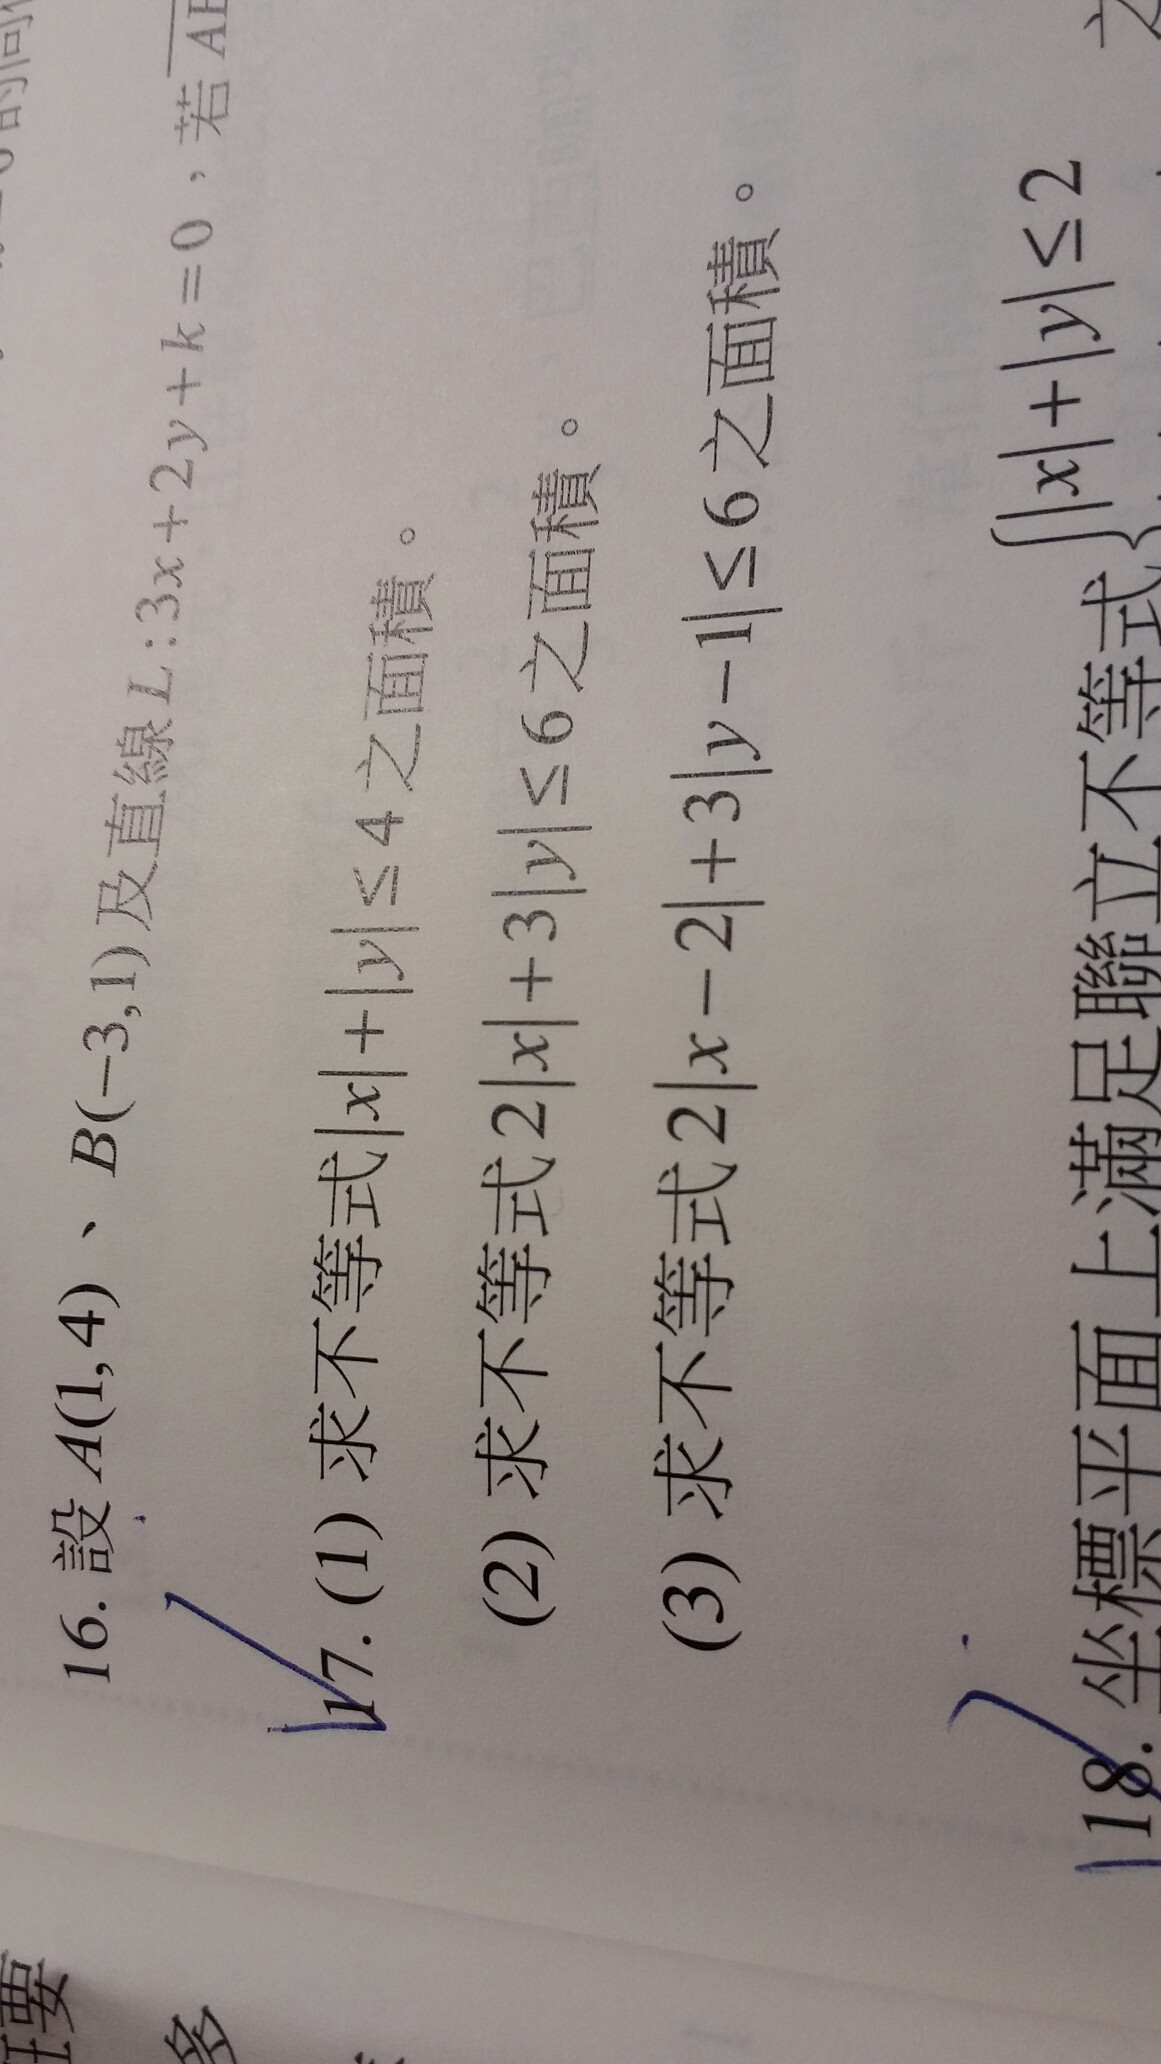 16. 設 A(1,4)、B(−3,1) 及直線 L:3x+2y+k=0,若
17. (1) 求不等式 |x|+|y|≤4 之面積。
(2) 求不等式 2|x|+3|y|≤6 之面積。
(3) 求不等式 2|x−2|+3|y−1|≤6 之面積。
18. 坐標平面上滿足聯立不等式 {|x|+|y|≤2
要
多